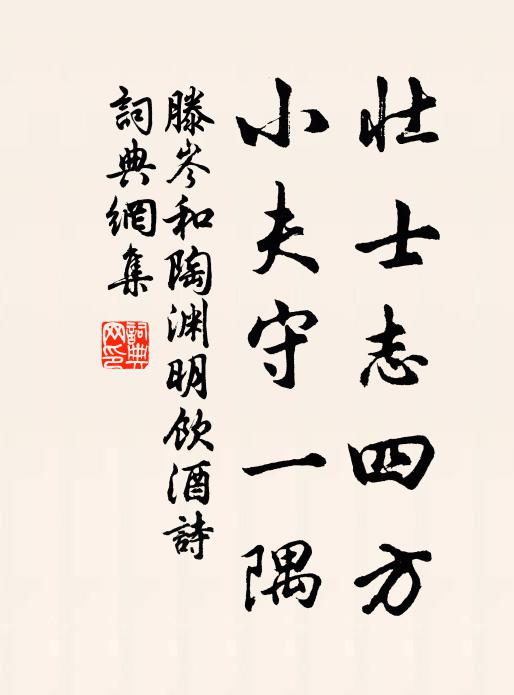 壮士志四方
小夫守一隅
滕岑和陶渊明饮酒詩
詞典網集
詞典网印